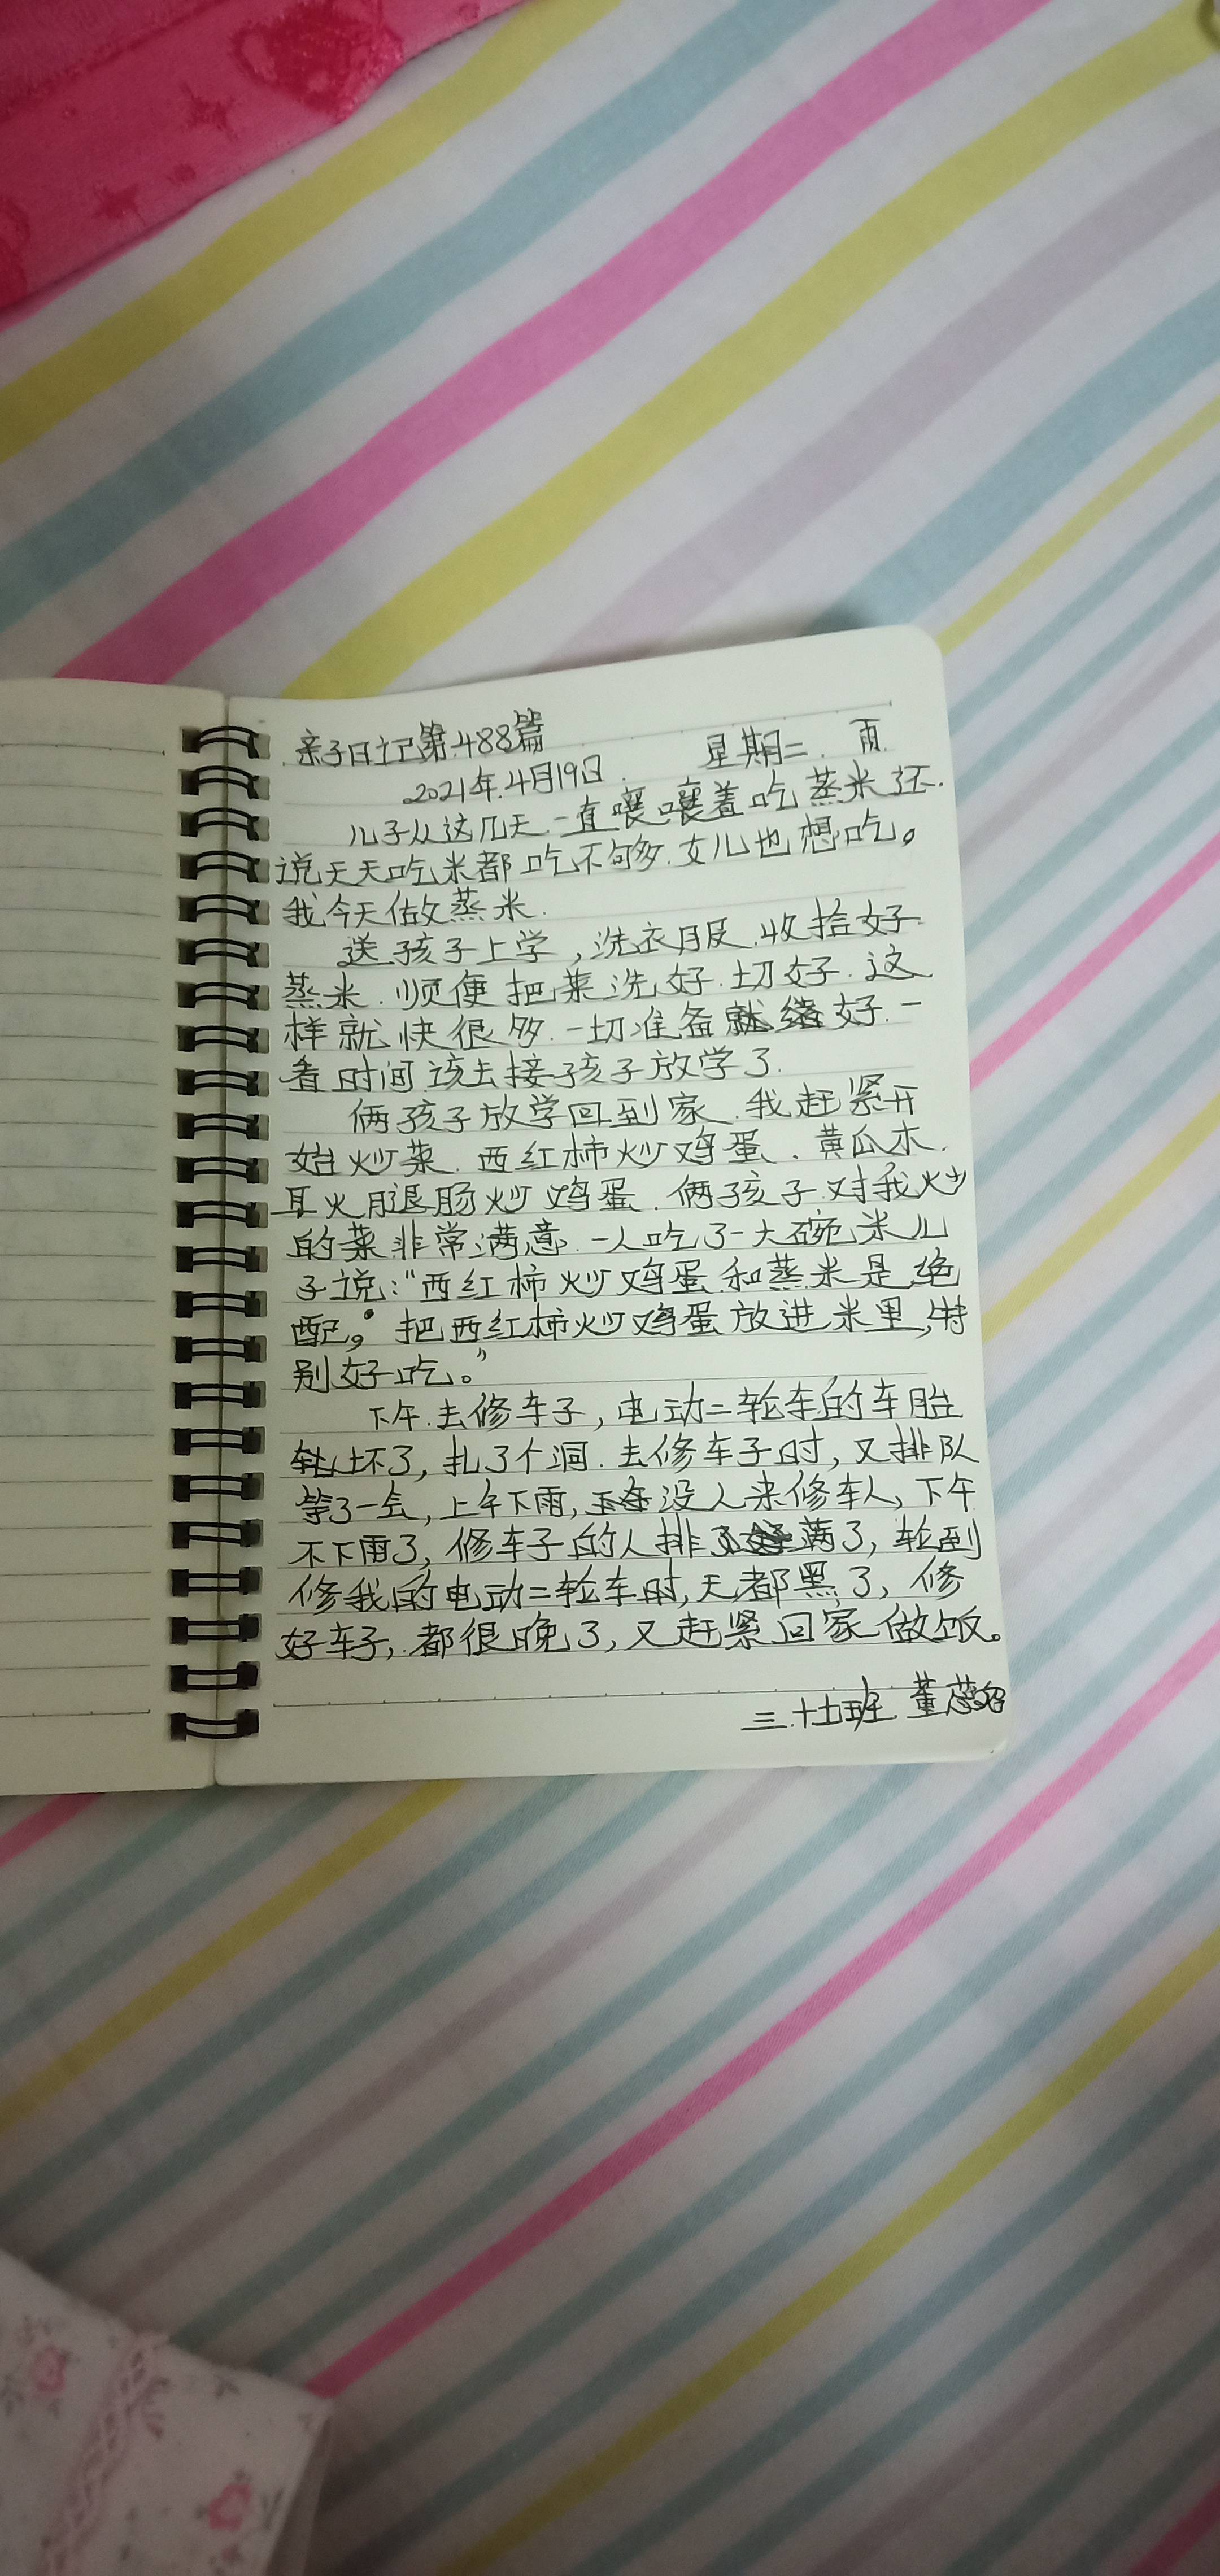 亲子日记第488篇
2021年.4月19日. 星期二. 雨.
儿子从这几天.一直嚷嚷着吃蒸米还.
说天天吃米都吃不够.女儿也想吃。
我今天做蒸米.
送孩子上学,洗衣服.收拾好.
蒸米.顺便把菜洗好.切好.这
样就快很多.一切准备就绪好.一
看时间.该去接孩子放学了.
俩孩子放学回到家.我赶紧开
始炒菜.西红柿炒鸡蛋.黄瓜木.
耳火腿肠炒鸡蛋.俩孩子对我炒
的菜非常满意.一人吃了一大碗米儿
子说:“西红柿炒鸡蛋和蒸米是绝
配,把西红柿炒鸡蛋放进米里,特
别好吃。”
下午.去修车子,电动二轮车的车胎
坏了,扎了个洞.去修车子时,又排队
等了一会,上午下雨,没人来修车,下午
不下雨了,修车子的人排满了,轮到
修我的电动二轮车时,天都黑了,修
好车子,都很晚了,又赶紧回家做饭。
三.十班.董